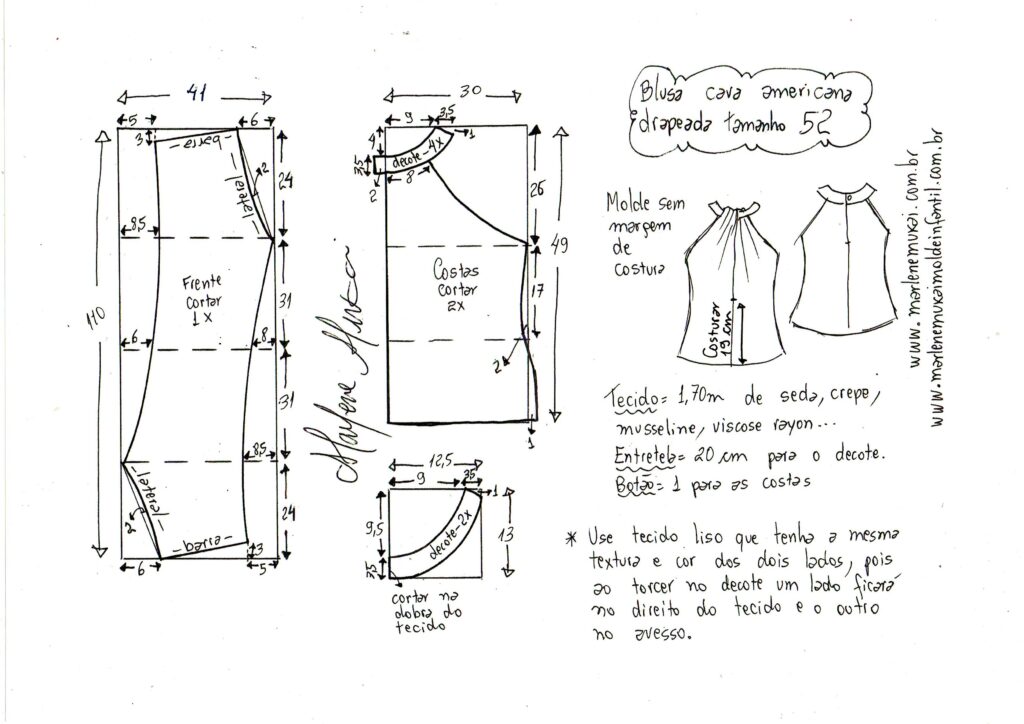 Blusa cava americana
drapeada tamanho 52
41
5
6
3
barra
lateral
2
24
8,5
Frente
cortar
1X
31
110
6
8
31
8,5
lateral
2
24
barra
3
6
5
Marlene Mukai
30
9
3,5
4
1
3,5
decote-4x
8
2
26
49
Costas
cortar
2X
17
2
1
12,5
9
3,5
1
9,5
decote-2x
13
3,5
cortar na
dobra do
tecido
Molde sem
margem
de
costura
Costurar
19 cm
www.marlenemukai.com.br
www.marlenemukaimoldeinfantil.com.br
Tecido= 1,70m de seda, crepe,
musseline, viscose rayon...
Entretela= 20 cm para o decote.
Botão= 1 para as costas
* Use tecido liso que tenha a mesma
textura e cor dos dois lados, pois
ao torcer no decote um lado ficará
no direito do tecido e o outro
no avesso.